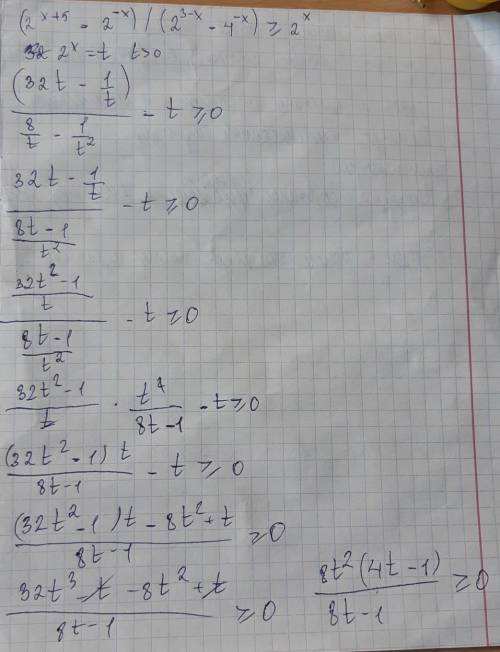 (2^{x+5} - 2^{-x}) / (2^{3-x} - 4^{-x}) ≥ 2^x
2^x = t t>0
(32t - 1/t) / (8/t - 1/t^2) - t ≥ 0
(32t - 1/t) / ((8t - 1)/t^2) - t ≥ 0
((32t^2 - 1)/t) / ((8t - 1)/t^2) - t ≥ 0
(32t^2 - 1)/t · t^2/(8t - 1) - t ≥ 0
((32t^2 - 1)t)/(8t - 1) - t ≥ 0
((32t^2 - 1)t - 8t^2 + t)/(8t - 1) ≥ 0
(32t^3 - t - 8t^2 + t)/(8t - 1) ≥ 0 (8t^2(4t - 1))/(8t - 1) ≥ 0